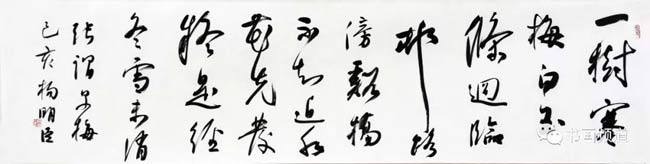 一樹寒
梅白玉
條迥臨
村路
傍谿橋
不知近水
花先發
疑是經
冬雪未消
張謂早梅
己亥楊明臣
书画频道